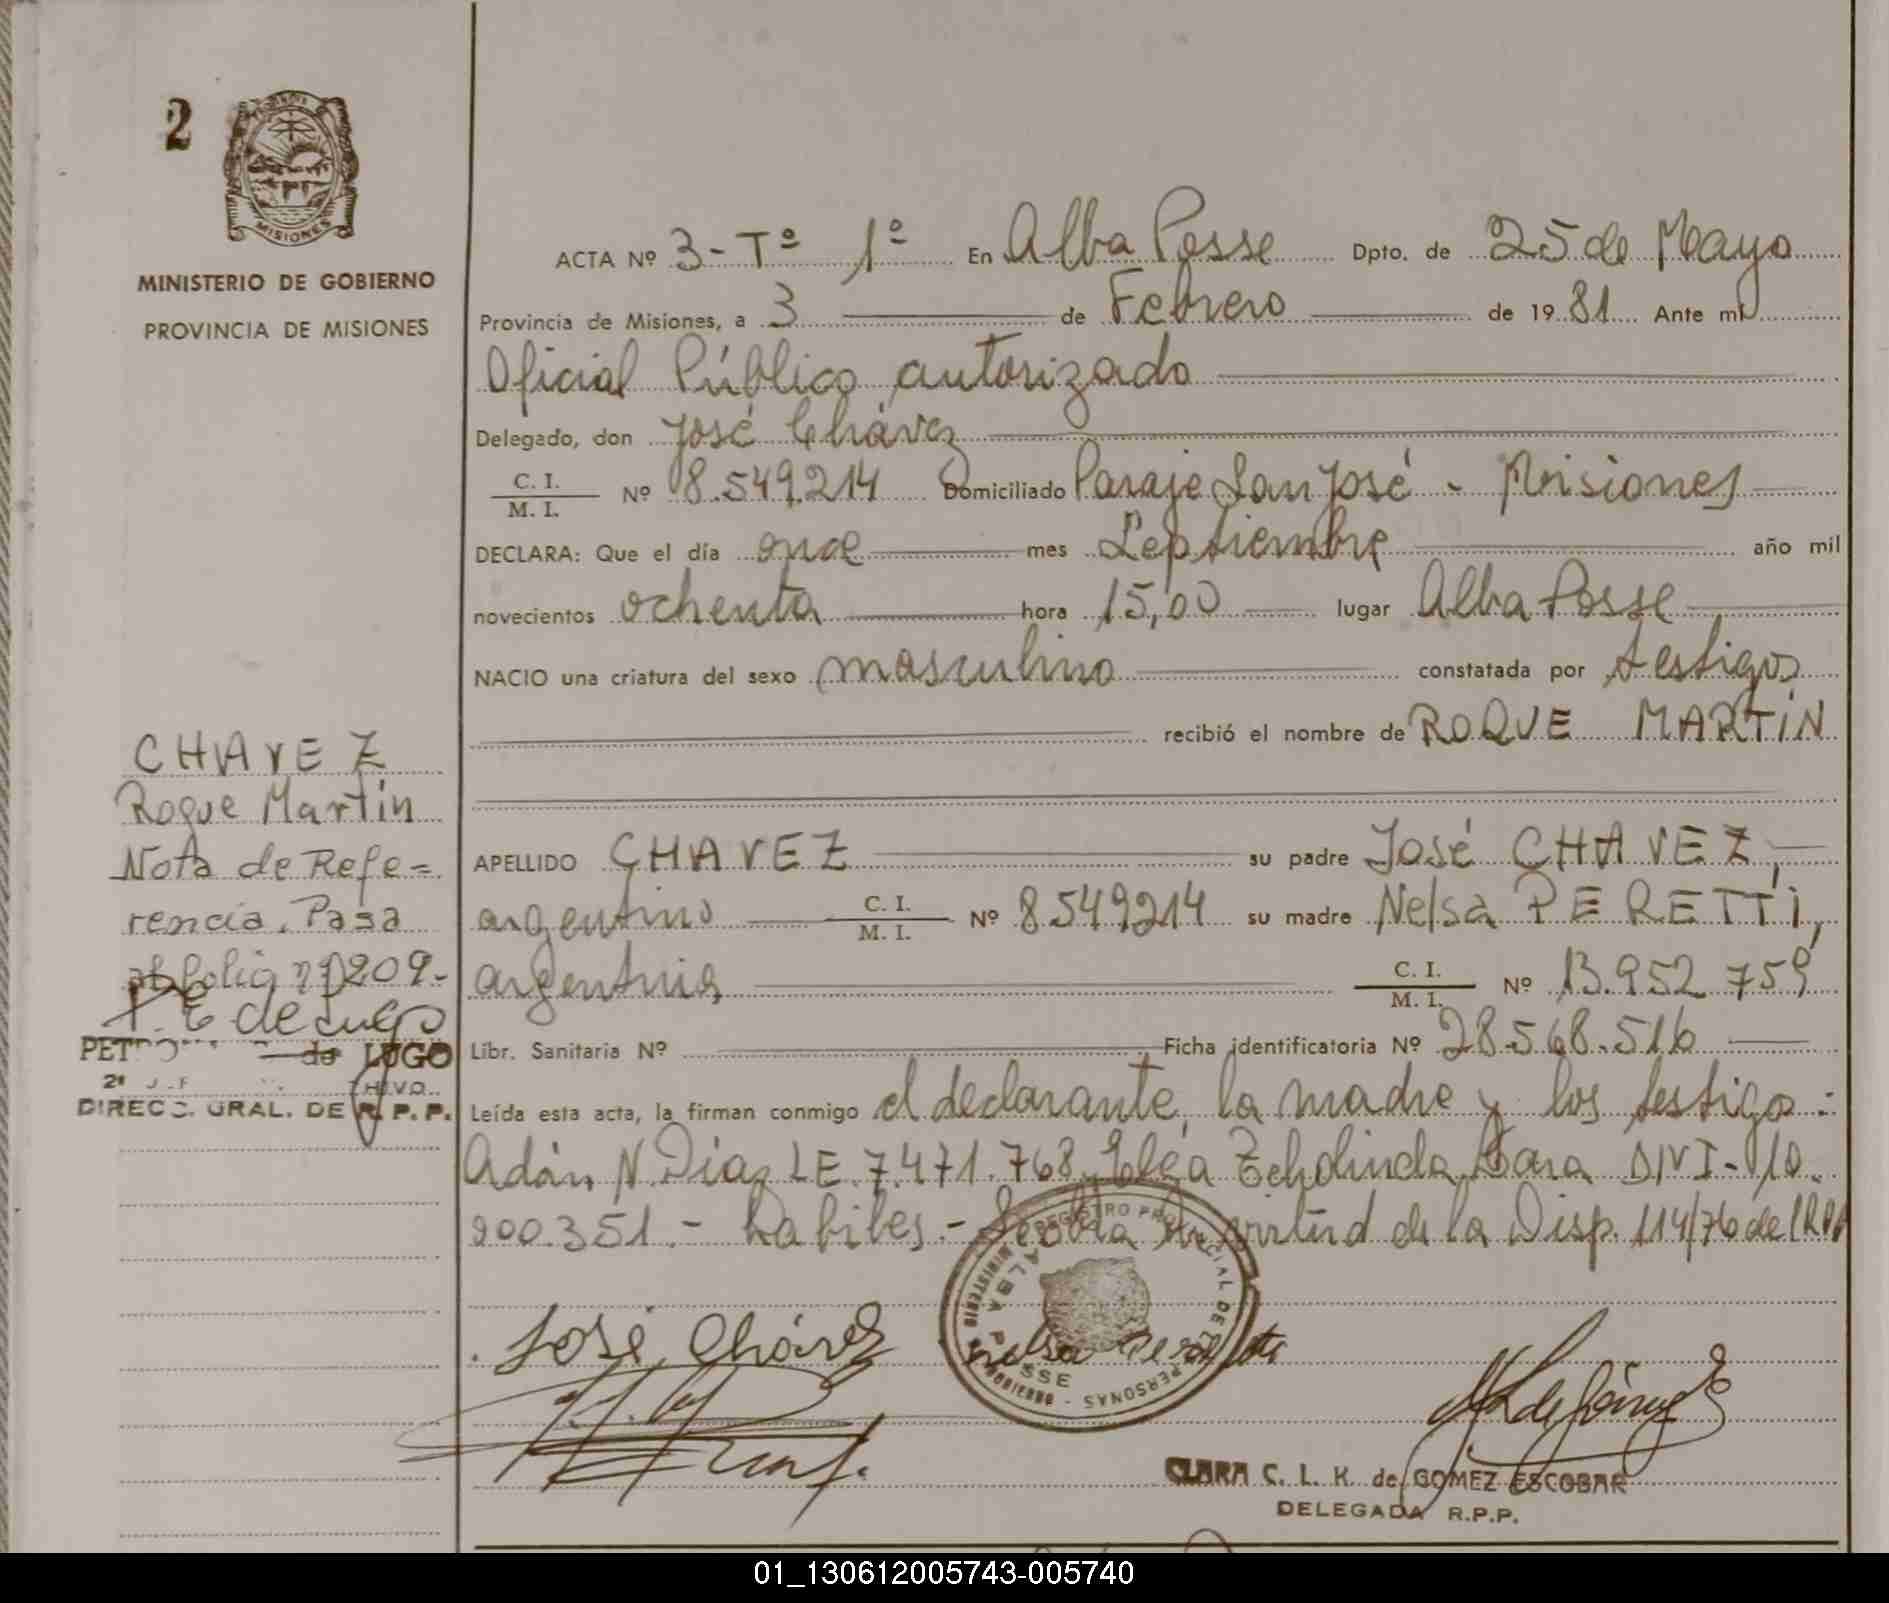 2
MISIONES
MINISTERIO DE GOBIERNO
PROVINCIA DE MISIONES
ACTA Nº 3 - Tº 1º En Alba Posse Dpto. de 25 de Mayo
Provincia de Misiones, a 3 de Febrero de 1981 Ante mí
Oficial Público autorizado
Delegado, don José Chávez
C. I.
M. I. Nº 8.549.214 Domiciliado Paraje San José - Misiones
DECLARA: Que el día once mes Septiembre año mil
novecientos ochenta hora 15,00 lugar Alba Posse
NACIO una criatura del sexo masculino constatada por testigos
recibió el nombre de ROQUE MARTÍN
APELLIDO CHAVEZ su padre José CHAVEZ,
argentino C. I.
M. I. Nº 8.549214 su madre Nelsa PERETTI,
argentina C. I.
M. I. Nº 13.952.759
Libr. Sanitaria Nº Ficha identificatoria Nº 28.568.516
Leída esta acta, la firman conmigo el declarante, la madre y los testigo:
Adán N. Díaz LE. 7.471.768 y Lara DNI - 10.
900.351. - habiles. - en virtud de la Disp. 114/76 de
CHAVEZ
Roque Martín
Nota de Refe=
rencia. Pasa
al folio nº 209.-
de Lugo
de LUGO
DIRECC. GRAL. DE R. P. P.
José Chávez
REGISTRO PROVINCIAL DE LAS PERSONAS - MINISTERIO DE GOBIERNO
ALBA POSSE
Nelsa
CLARA C. L. K. de GOMEZ ESCOBAR
DELEGADA R.P.P.
01_130612005743-005740